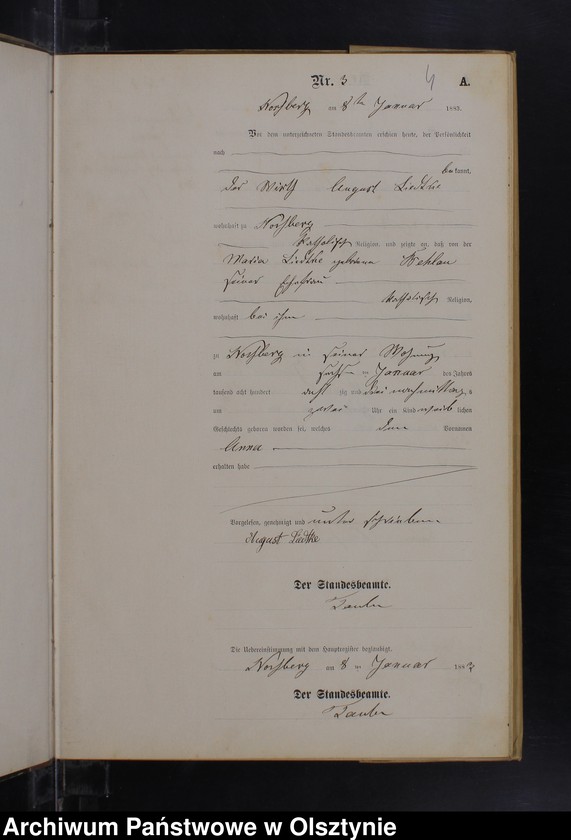 Nr. 3 4 A.
Noßberg am 8ten Januar 1883.
Vor dem unterzeichneten Standesbeamten erschien heute, der Persönlichkeit
nach
bekannt,
der Wirth August Liedtke
wohnhaft zu Noßberg
katholischer Religion, und zeigte an, daß von der
Maria Liedtke geborene Wehlau
seiner Ehefrau
katholischer Religion,
wohnhaft bei ihm
zu Noßberg in seiner Wohnung
am sechsten Januar des Jahres
tausend acht hundert achtzig und drei nachmittags
um zwei Uhr ein Kind weiblichen
Geschlechts geboren worden sei, welches den Vornamen
Anna
erhalten habe
Vorgelesen, genehmigt und unterschrieben
August Liedtke
Der Standesbeamte.
Die Uebereinstimmung mit dem Hauptregister beglaubigt.
Noßberg am 8ten Januar 1883
Der Standesbeamte.
Archiwum Państwowe w Olsztynie